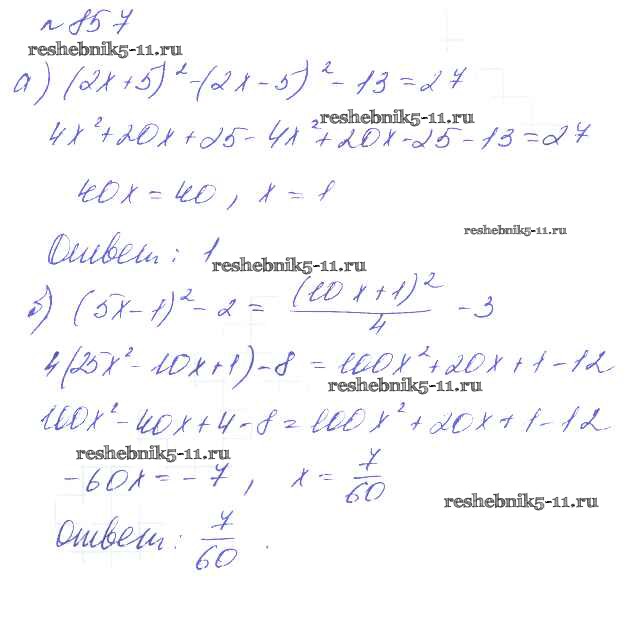 № 857
reshebnik5-11.ru
а) (2x+5)² - (2x-5)² - 13 = 27
reshebnik5-11.ru
4x² + 20x + 25 - 4x² + 20x - 25 - 13 = 27
40x = 40, x = 1
reshebnik5-11.ru
Ответ: 1
reshebnik5-11.ru
б) (5x-1)² - 2 = (10x+1)²/4 - 3
4(25x² - 10x + 1) - 8 = 100x² + 20x + 1 - 12
reshebnik5-11.ru
100x² - 40x + 4 - 8 = 100x² + 20x + 1 - 12
reshebnik5-11.ru
-60x = -7, x = 7/60
reshebnik5-11.ru
Ответ: 7/60.